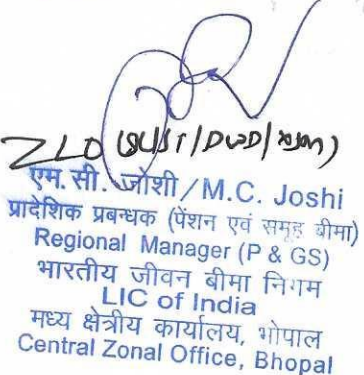 ZLO (SC/ST/DWD/
एम. सी. जोशी / M.C. Joshi
प्रादेशिक प्रबन्धक (पेंशन एवं समूह बीमा)
Regional Manager (P & GS)
भारतीय जीवन बीमा निगम
LIC of India
मध्य क्षेत्रीय कार्यालय, भोपाल
Central Zonal Office, Bhopal